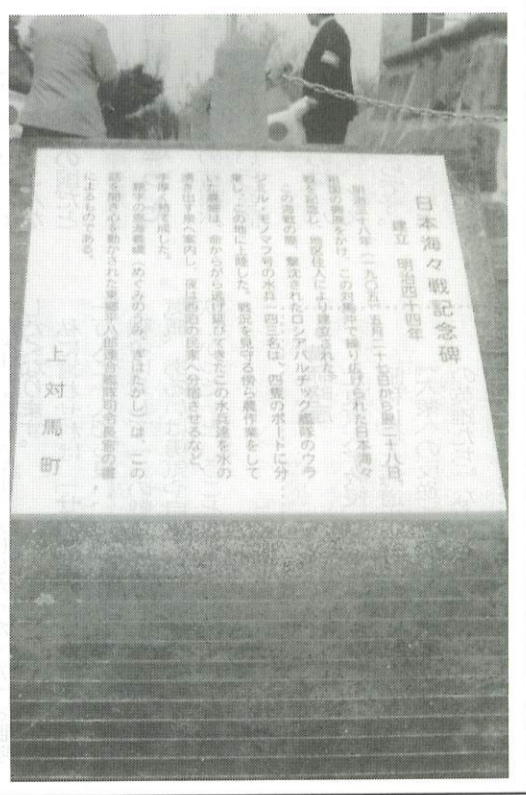 日本海々戦記念碑
建立 明治四十四年
明治三十八年(一九〇五)五月二十七日から翌二十八日、
祖国の興廃をかけ、この対馬沖で繰り広げられた日本海々
戦を記念し、地区住人により建立された。
この海戦の際、撃沈されたロシアバルチック艦隊のウラ
ジミル・モノマフ号の水兵一四三名は、四隻のボートに分
乗し、この地に上陸した。戦況を見守る傍ら農作業をして
いた農婦は、命からがら逃げ延びてきたこの水兵達を水の
湧き出す泉へ案内し、夜は西泊の民家へ分宿させるなど、
手厚く持て成した。
碑文の恩海義嶠(めぐみのうみ、ぎはたかし)は、この
話を聞き心を動かされた東郷平八郎連合艦隊司令長官の書
によるものである。
上対馬町